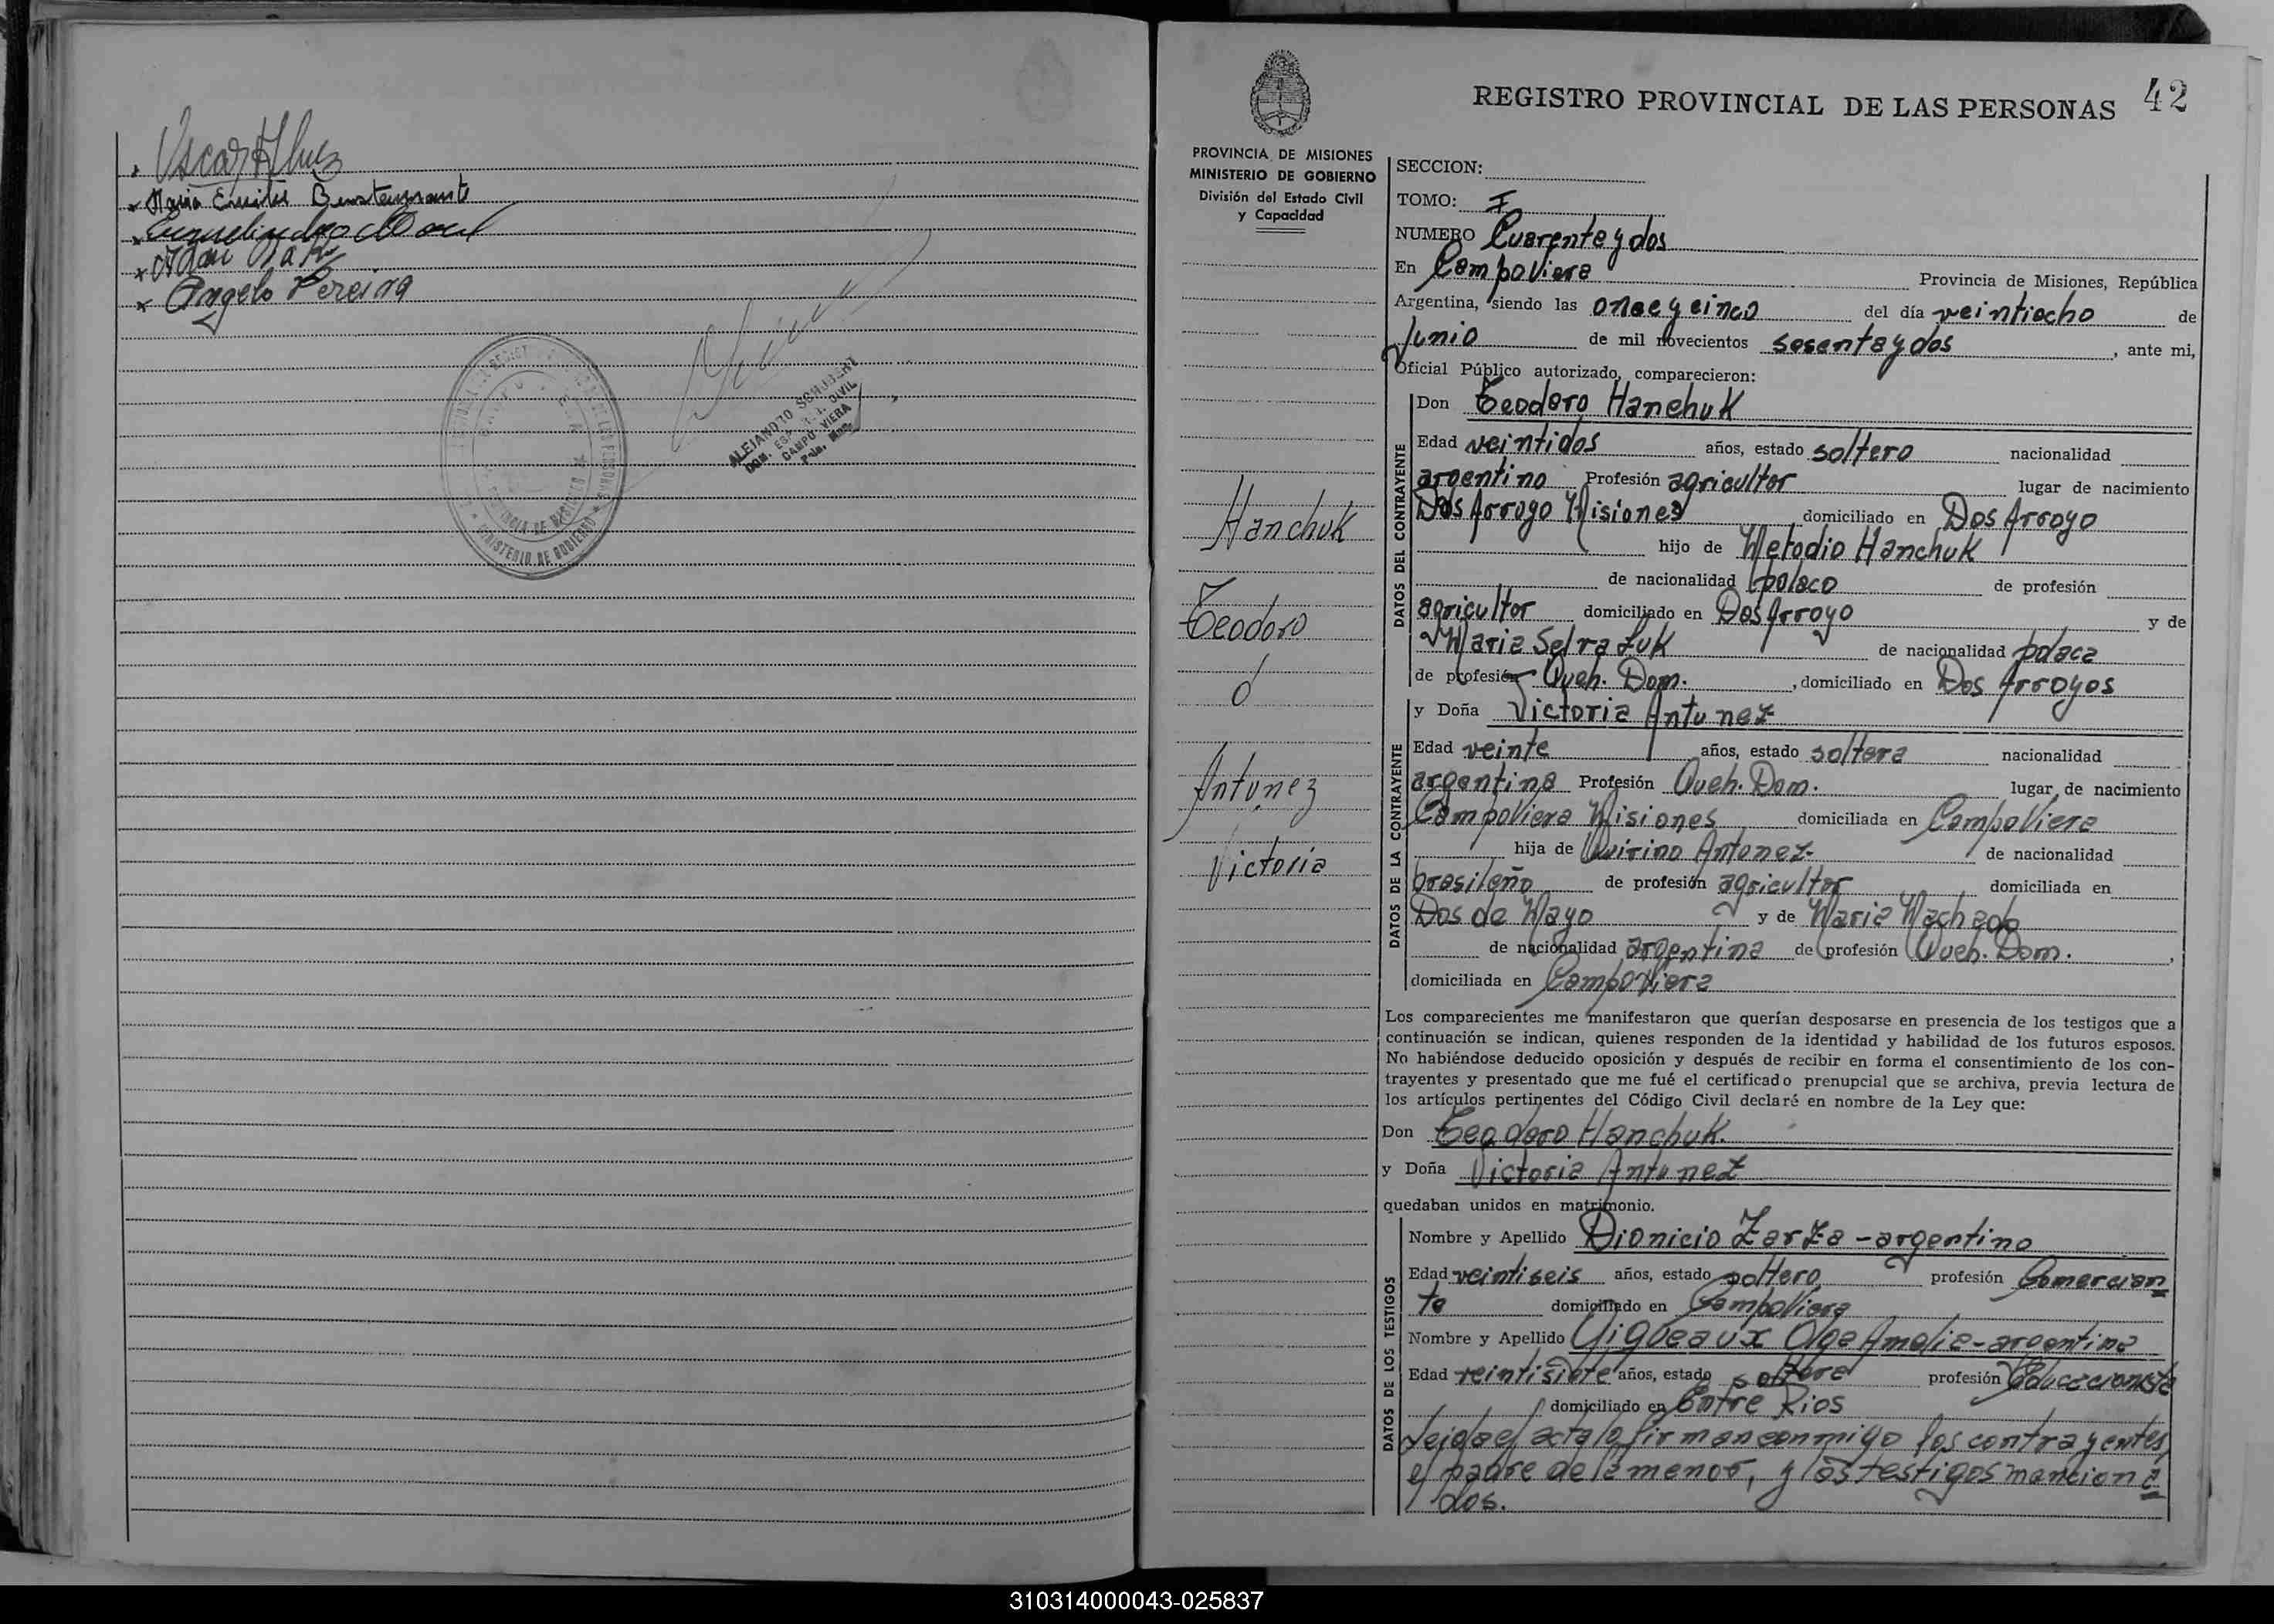 Oscar
Maria Emilia
Angelo Pereira
MINISTERIO DE GOBIERNO
PROVINCIA DE MISIONES
ALEJANDRO SCHUBERT
CAMPO VIERA
REGISTRO PROVINCIAL DE LAS PERSONAS 42
PROVINCIA DE MISIONES
MINISTERIO DE GOBIERNO
División del Estado Civil
y Capacidad
Hanchuk
Teodoro
Antunez
Victoria
SECCION:
TOMO: I
NUMERO Cuarenta y dos
En Campo Viera Provincia de Misiones, República
Argentina, siendo las once y cinco del día veintiocho de
Junio de mil novecientos sesenta y dos, ante mi,
Oficial Público autorizado, comparecieron:
DATOS DEL CONTRAYENTE
Don Teodoro Hanchuk
Edad veintidos años, estado soltero nacionalidad
argentino Profesión agricultor lugar de nacimiento
Dos Arroyo Misiones domiciliado en Dos Arroyo
hijo de Metodio Hanchuk
de nacionalidad polaco de profesión
agricultor domiciliado en Dos Arroyo y de
Maria de nacionalidad polaca
de profesión Queh. Dom., domiciliado en Dos Arroyos
DATOS DE LA CONTRAYENTE
y Doña Victoria Antunez
Edad veinte años, estado soltera nacionalidad
argentina Profesión Queh. Dom. lugar de nacimiento
Campo Viera Misiones domiciliada en Campo Viera
hija de Quirino Antonez de nacionalidad
brasileño de profesión agricultor domiciliada en
Dos de Mayo y de Maria Machado
de nacionalidad argentina de profesión Queh. Dom.,
domiciliada en Campo Viera
Los comparecientes me manifestaron que querían desposarse en presencia de los testigos que a
continuación se indican, quienes responden de la identidad y habilidad de los futuros esposos.
No habiéndose deducido oposición y después de recibir en forma el consentimiento de los con-
trayentes y presentado que me fué el certificado prenupcial que se archiva, previa lectura de
los artículos pertinentes del Código Civil declaré en nombre de la Ley que:
Don Teodoro Hanchuk.
y Doña Victoria Antunez
quedaban unidos en matrimonio.
DATOS DE LOS TESTIGOS
Nombre y Apellido Dionicio Zarza - argentino
Edad veintiseis años, estado soltero profesión Comercian
te domiciliado en Campo Viera
Nombre y Apellido Vigueaux Olga Amelia - argentina
Edad veintisiete años, estado soltera profesión Educacionista
domiciliado en Entre Rios
Leida el acta la firman conmigo los contrayentes,
el padre de la menor, y los testigos menciona
dos.
310314000043-025837